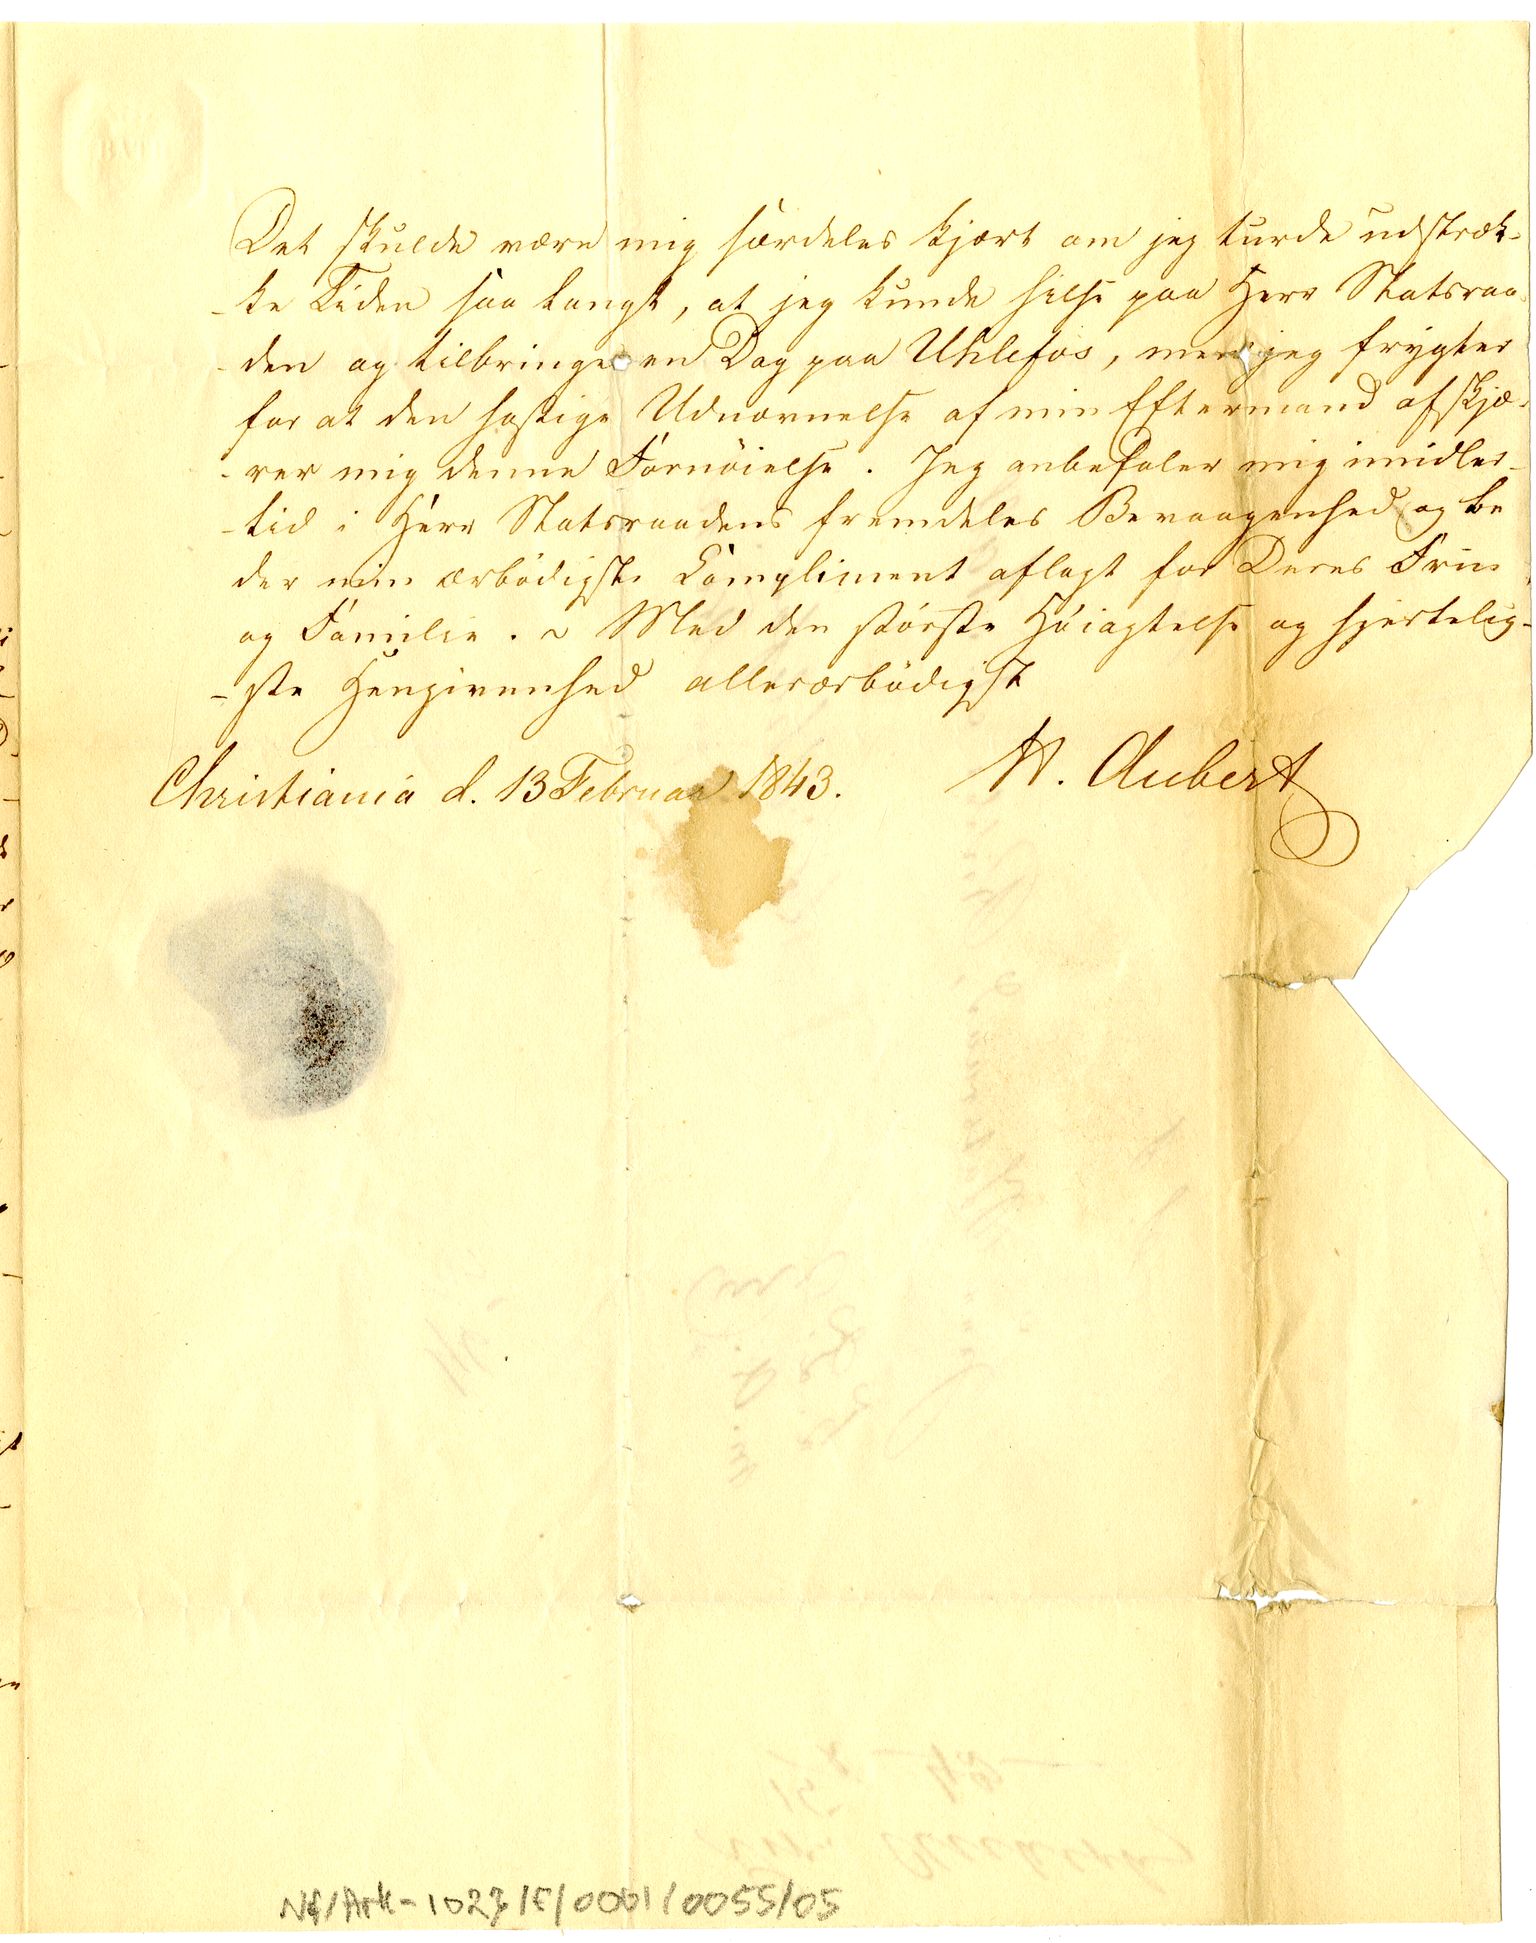 Det skulde være mig særdeles kjært om jeg turde udstræk-
-ke Tiden saa langt, at jeg kunde hilse paa Herr Statsraa-
-den og tilbringe en Dag paa Uhlefos, men jeg frygter
for at den hastige Udnævnelse af min Eftermand afskjæ-
-rer mig denne Fornöielse. Jeg anbefaler mig imidler-
-tid i Herr Statsraadens fremdeles Bevaagenhed og be
der min ærbödigste Compliment aflagt for Deres Frue
og Familie. ~ Med den störste Höiagtelse og hjertelig-
-ste Hengivenhed allerærbödigst
Christiania d. 13 Februar 1843.
Aubert
NF/Ark-1023/F/0001/0055/05